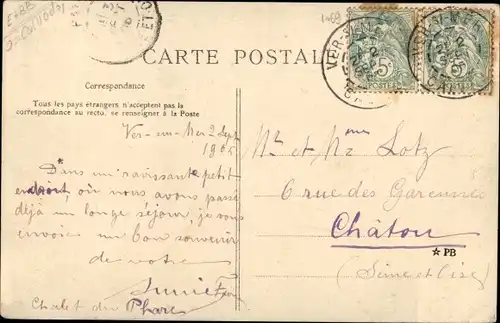 CARTE POSTALE
Correspondance
Tous les pays étrangers n'acceptent pas la
correspondance au recto, se renseigner à la Poste
Ver-sur-Mer 2 Sept
1905
Dans un ravissant petit
endroit, où nous avons passé
déjà un longe séjour, je vous
envoie un bon souvenir
de votre
Chalet du Phare
VER-S-MER
5c
5c
Mr et Mme Lotz
6 rue des Garennes
Châtou
* PB
(Seine et Oise)